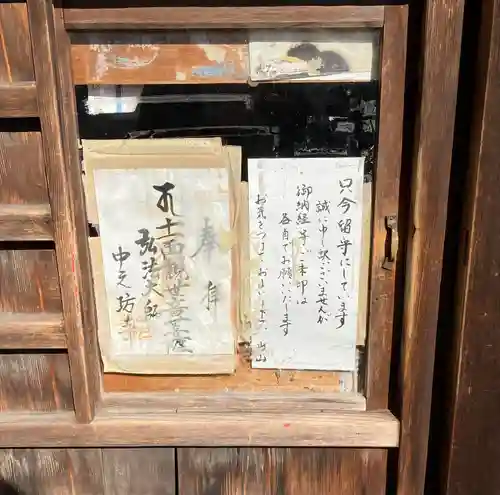 只今留守にしています
誠に申し訳ございませんが
御納経等ご朱印は
各自でお願いいたします
お気をつけてお
奉
十一面観世音菩薩
弘法大師
中之坊寺